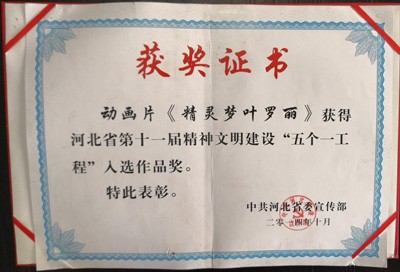 获奖证书
动画片《精灵梦叶罗丽》获得
河北省第十一届精神文明建设“五个一工
程”入选作品奖。
特此表彰。
中共河北省委宣传部
二〇一四年十月